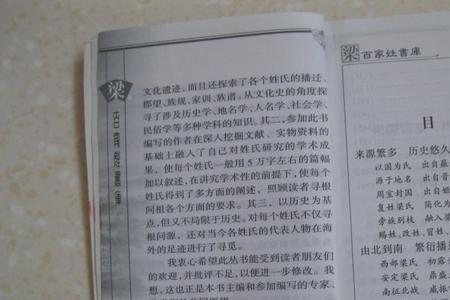 梁
百家姓書庫
文化遗迹，而且还探索了各个姓氏的播迁、
郡望、族规、家训、族谱。从文化史的角度探
寻了涉及历史学、地名学、人名学、社会学、
民俗学等多种学科的知识。其二，参加此书
编写的作者在深入挖掘文献、实物资料的
基础上融入了自己对姓氏研究的学术成
果，使每个姓氏一般用5万字左右的篇幅
加以叙述，在讲究学术性的前提下，使每个
姓氏得到了多方面的阐述，照顾读者寻根
问祖各个方面的要求。其三，以历史为基
点，但又不局限于历史。对每个姓氏不仅寻
根问源，还对当今各姓氏的代表人物在海
外的足迹进行了寻觅。
我衷心希望此丛书能受到读者朋友们
的欢迎，并批评不足，以便进一步修改。我
想，这也正是本书主编和参加编写的专家、
梁 百家姓書庫
目
来源繁多 历史悠久
以国为氏 出自嬴
源于地名 出自
周室封国 出自姬
复姓梁氏 简化为
旁族别枝 融入梁
赐姓、改姓、冒姓、
由北到南 繁衍播
西部梁氏 初露
安定梁氏 鼎盛
南征北战 威振